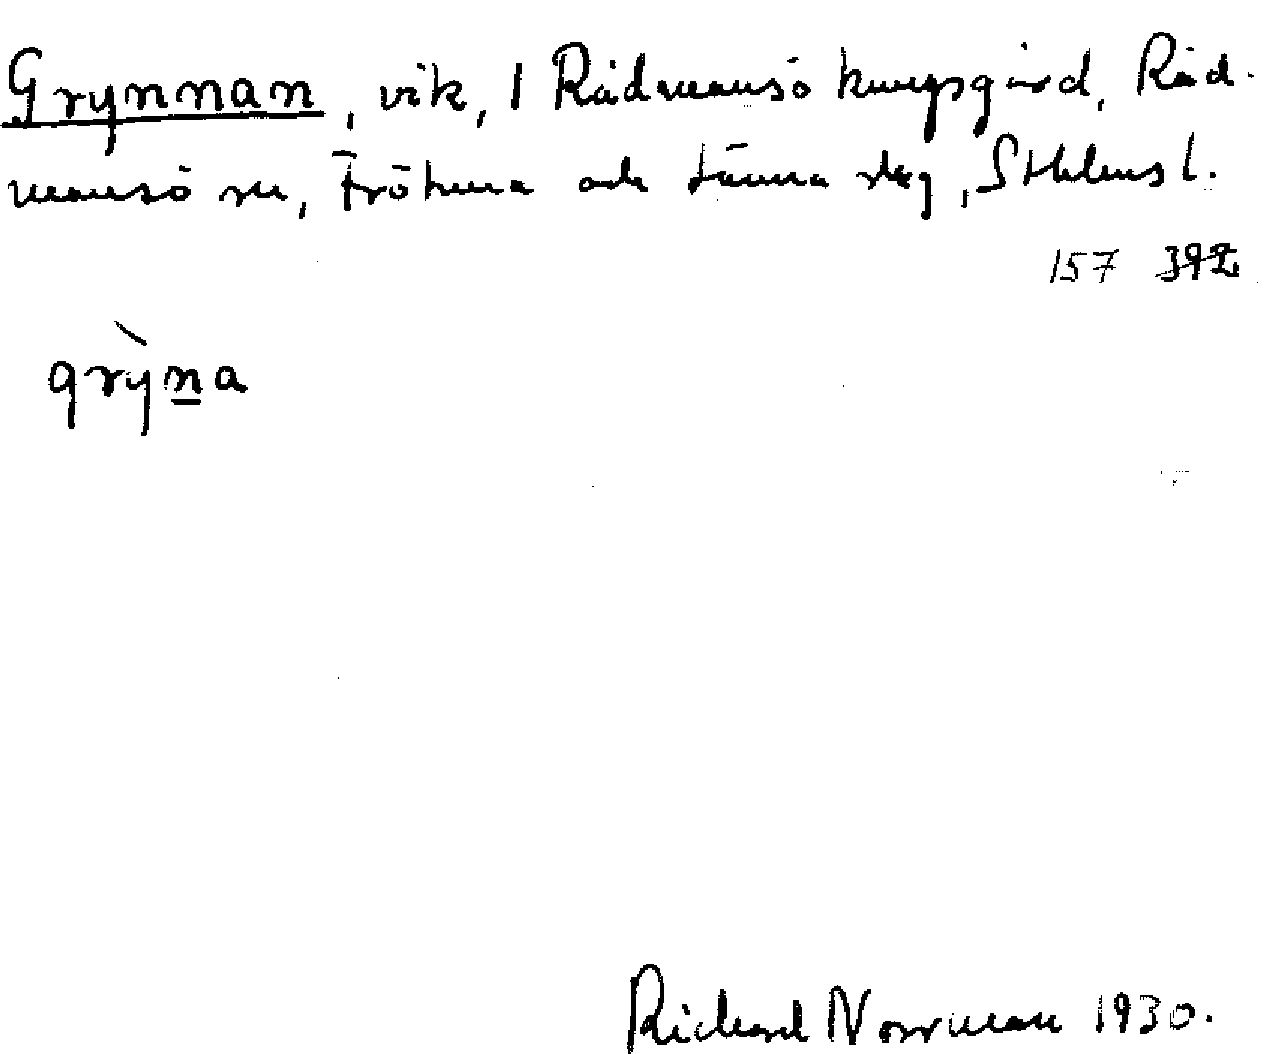 Grynnan, vik, 1 Rådmansö kungsgård, Råd-
mansö sn, Frötuna och Länna skg, Sthlms l.
157 392
grỳna
Richard Norrman 1930.